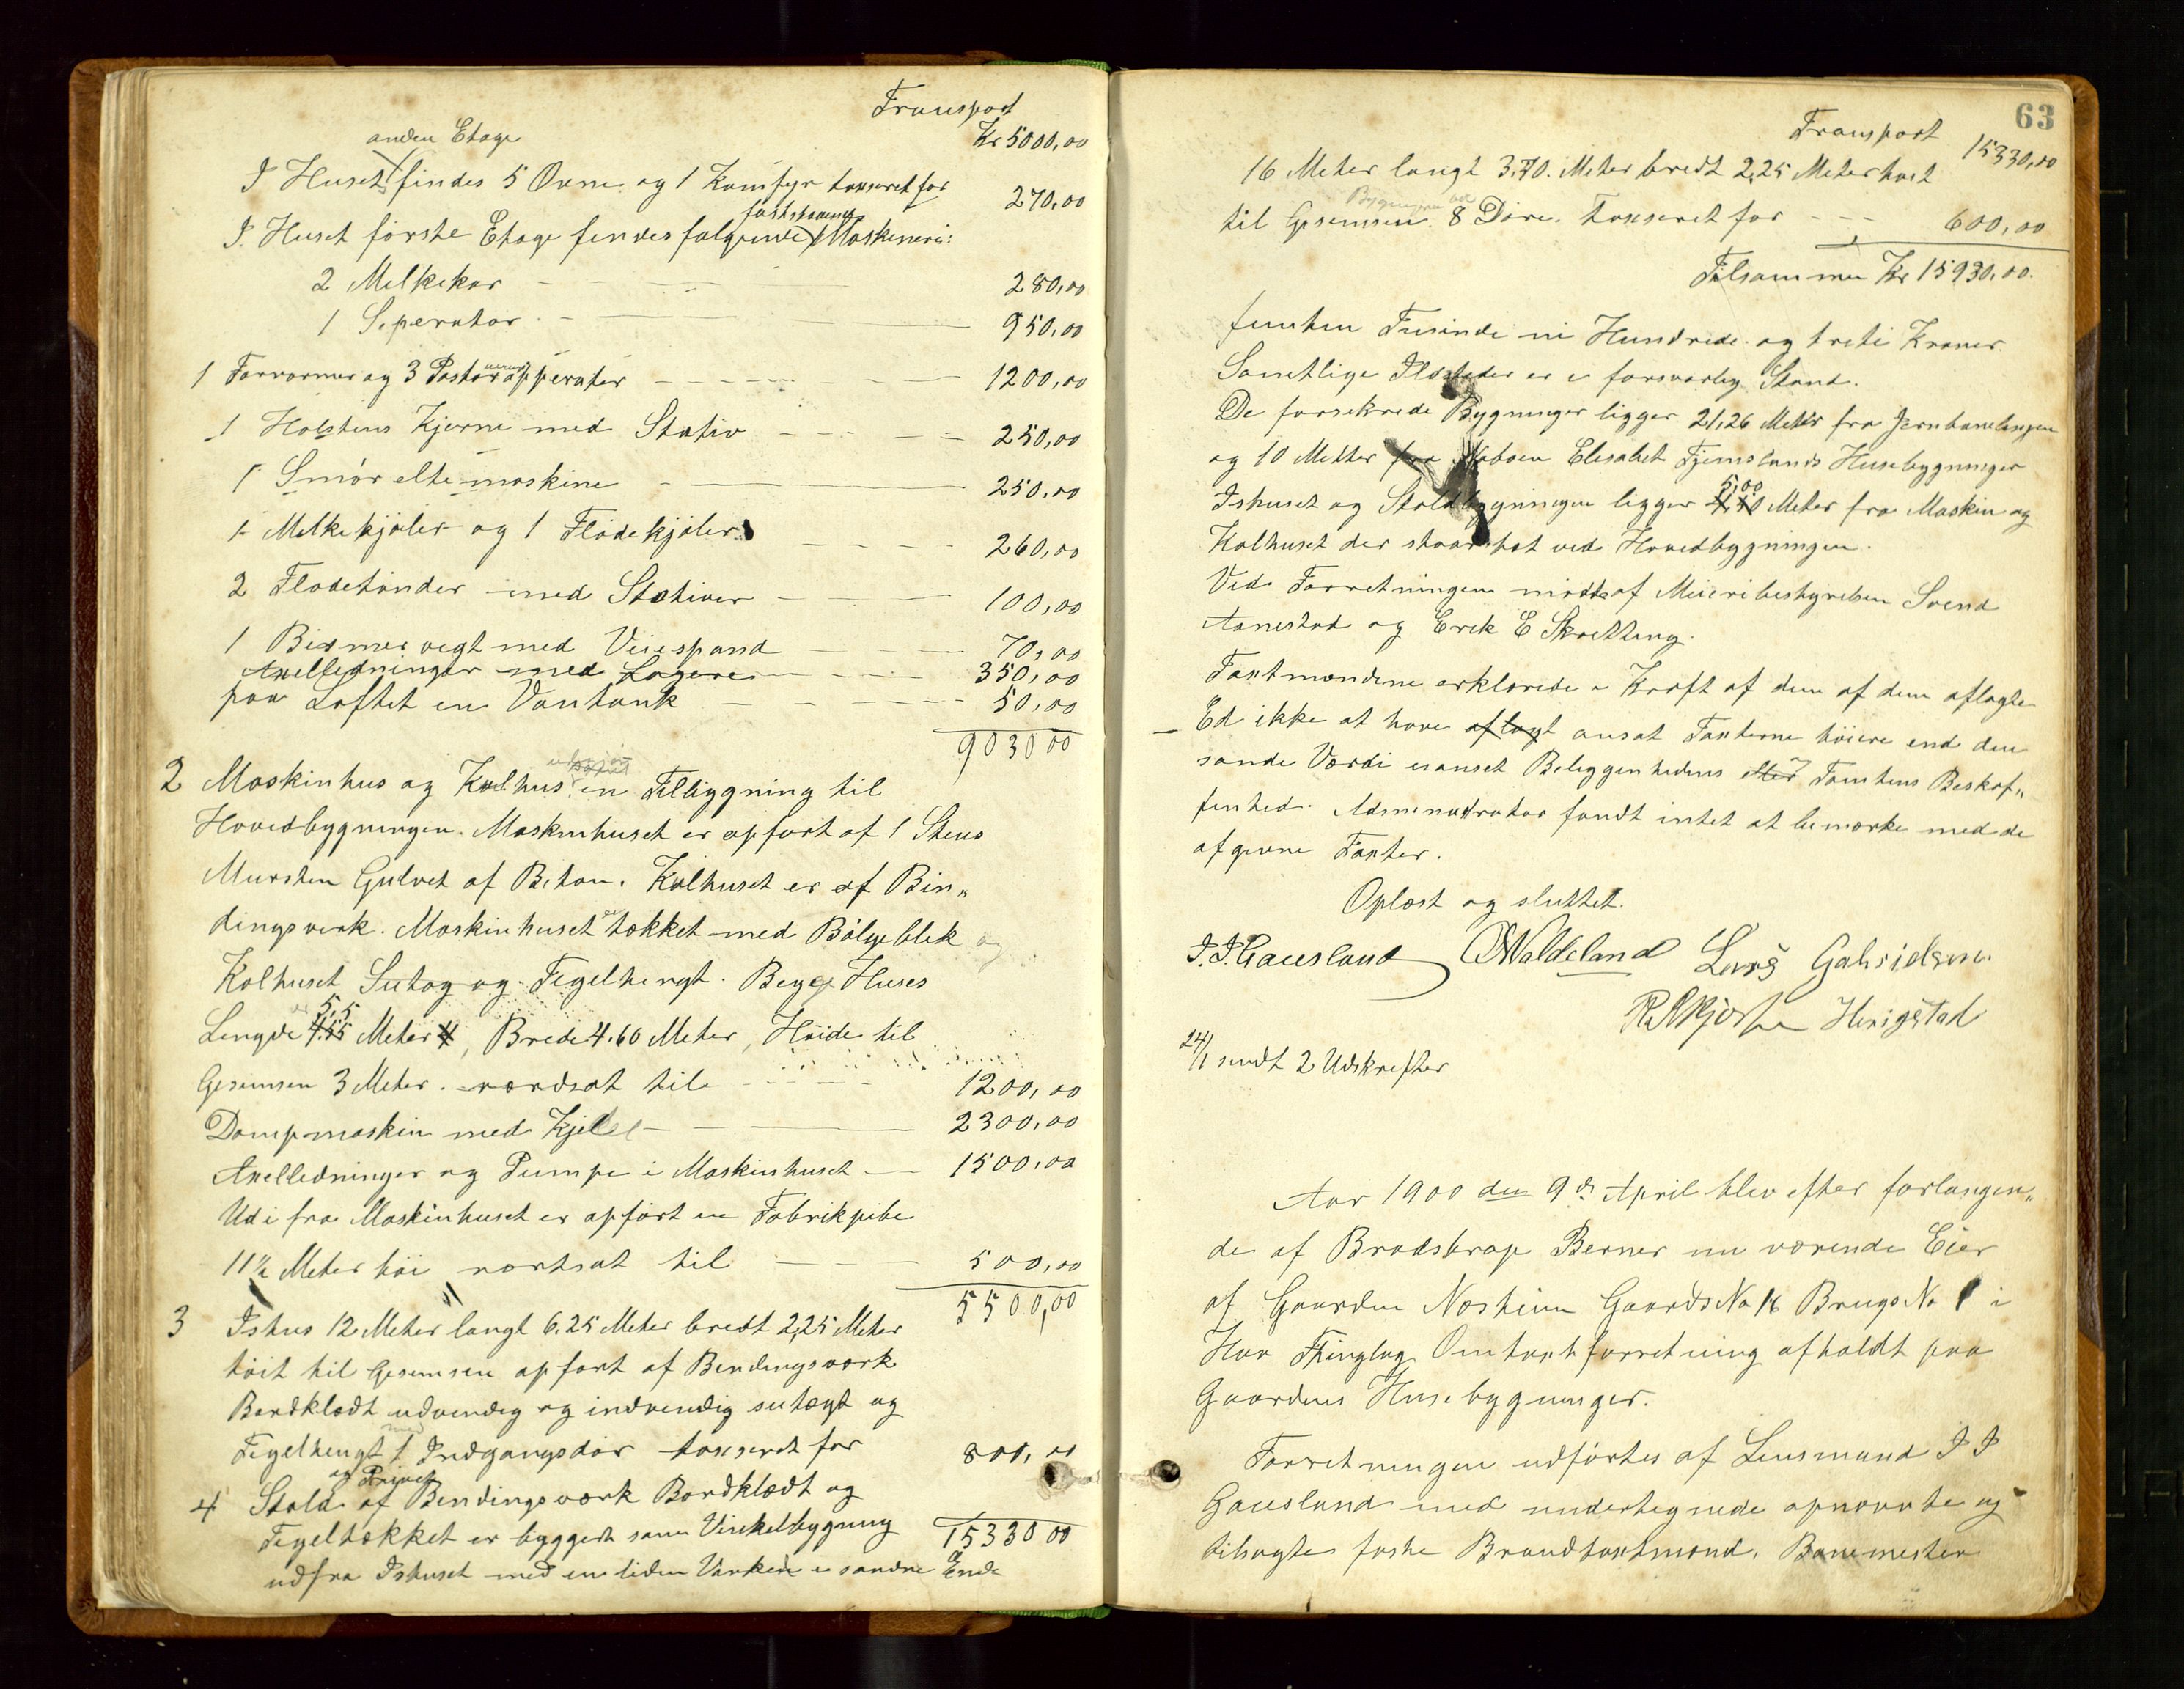 Transport
anden Etage
Kr 5000,00
I Huset findes 5 Ovne og 1 Komfyr taxseret for 270,00
faststaaende
I Huset første Etage findes følgende Maskineri:
2 Melkekar 280,00
1 Seperator 950,00
1 Forvarmer og 3 apperater 1200,00
1 Holstens Kjerne med Stativ 250,00
1 Smør elte maskine 250,00
1 Melkekjøler og 1 Flødekjøler 260,00
2 Flødetønder med Stativer 100,00
1 Bismervegt med Veiespand 70,00
Axelledninger med Lagere 350,00
paa Loftet en Vantank 50,00
9030 00
2 Maskinhus og Kolhus en Tilbygning til
Hovedbygningen. Maskinhuset er opført af 1 Stens
Mursten Gulvet af Beton. Kolhuset er af Bin„
dingsverk. Maskinhuset er tækket med Bølgeblik og
Kolhuset Sutag og Tegelhengt. Begge Huses
5,5
Lengde 4.55 Meter, Brede 4.60 Meter, Høide til
Gesemsen 3 Meter. værdsat til 1200,00
Dampmaskin med Kjelel 2300,00
Axelledninger og Pumpe i Maskinhuset 1500,00
Ud i fra Maskinhuset er opført en Fabrikpibe
11½ Meter høi værtsat til 500,00
5500,00
3 Ishus 12 Meter langt 6,25 Meter bredt 2,25 Meter
høit til Gesemsen opført af Bendingsværk
Bordklædt udvendig og indvendig sutægt og
med
Tegelhengt 1 Indgangsdør taxseret for 800,00
og Privet
4 Stald af Bendingsværk Bordklædt og
Tegeltækket er bygget som Vinkelbygning 15330 00
udfra Ishuset med en liden Vinkel i søndre Ende
63
Transport 15330,00
16 Meter langt 3,70. Meter bredt 2,25 Meter høit
til Gesemsen 8 Døre. Taxseret for 600,00
Tilsammen Kr 15930,00.
femten Tusinde ni Hundrede og treti Kroner
Samtlige Ildsteder er i forsvarlig Stand.
De forsekrede Bygninger ligger 21,26 Meter fra Jernbanelinjen
og 10 Metter fra Naboen Elisabet Tjemslands Husebygninger
5,00
Ishuset og Staldbygningen ligger 4,40 Meter fra Maskin og
Kolhuset der staar tæt ved Hovedbygningen.
Ved Forretningen mødte af Meieribestyrelsen Svend
Aanestad og Erik E Skretting.
Taxtmændene erklærede i Kraft af den af dem aflagte
Ed ikke at have aflagt ansat Taxterne høiere end den
sande Værdi uanset Beleggenhedens eller Tomtens Beskaf„
fenhed. Admenistrator fandt intet at bemærke med de
afgivne Taxter.
Oplæst og sluttet.
J. J. Gausland O Waldeland Lars Gabrielsen
R Rkjos Herigstad
24/1 sendt 2 Udskrefter
Aar 1900 den 9de April blev efter forlangen„
de af Brødskrap Berner nu værende Eier
af Gaarden Næsheim Gaards No 18 Brugs No 1 i
Haa Thinglag Omtaxtforretning afholdt paa
Gaardens Husebygninger.
Forretningen udførtes af Lensmand J J
Gausland med undertegnede opnævnte og
tilsagte faste Brandtaxtmænd, Banemester